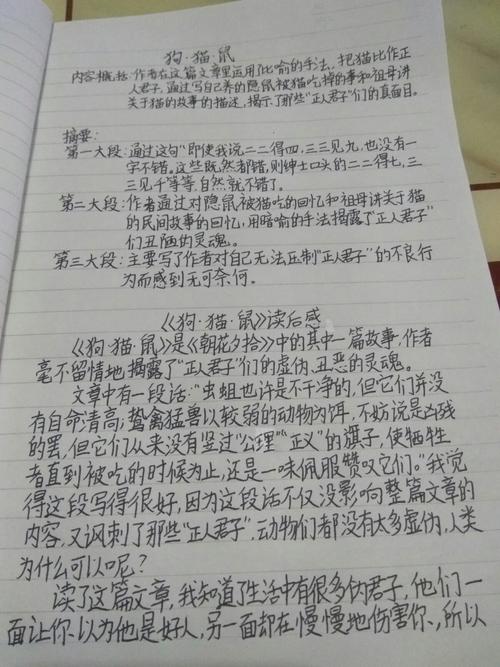 狗·猫·鼠
内容概括:作者在这篇文章里运用了比喻的手法,把猫比作正
人君子,通过写自己养的隐鼠被猫吃掉的事和祖母讲
关于猫的故事的描述,揭示了那些"正人君子"们的真面目。
摘要:
第一大段:通过这句"即使我说二二得四,三三见九,也没有一
字不错。这些既然都错,则绅士口头的二二得七,三
三见千等等,自然就不错了。
第二大段:作者通过对隐鼠被猫吃的回忆和祖母讲关于猫
的民间故事的回忆,用暗喻的手法揭露了"正人君子"
们丑陋的灵魂。
第三大段:主要写了作者对自己无法压制"正人君子"的不良行
为而感到无可奈何。
《狗·猫·鼠》读后感
《狗·猫·鼠》是《朝花夕拾》中的其中一篇故事,作者
毫不留情地揭露了"正人君子"们的虚伪、丑恶的灵魂。
文章中有一段话:"虫蛆也许是不干净的,但它们并没
有自命清高;鸷禽猛兽以较弱的动物为饵,不妨说是凶残
的罢,但它们从来没有竖过"公理""正义"的旗子,使牺牲
者直到被吃的时候为止,还是一味佩服赞叹它们。"我觉
得这段写得很好,因为这段话不仅没影响整篇文章的
内容,又讽刺了那些"正人君子",动物们都没有太多虚伪,人类
为什么可以呢?
读了这篇文章,我知道了生活中有很多伪君子,他们一
面让你以为他是好人,另一面却在慢慢地伤害你,所以